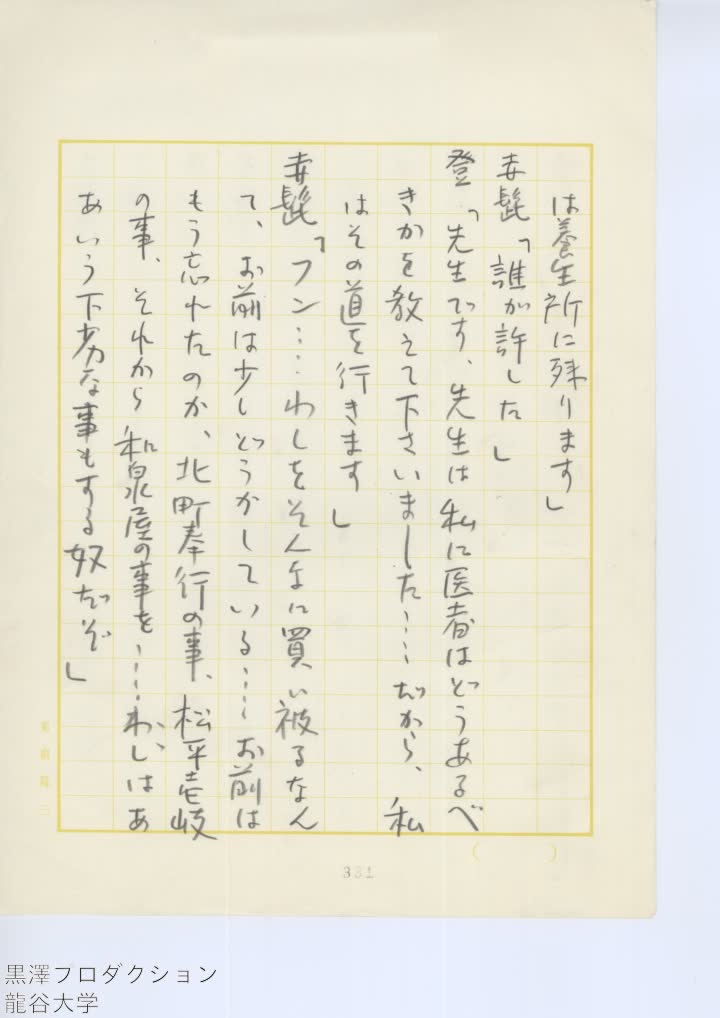 は養生所に残ります」
赤髭「誰が許した」
登「先生です、先生は私に医者はどうあるべ
きかを教えて下さいました……だから、私
はその道を行きます」
赤髭「フン……わしをそんなに買い被るなん
て、お前は少しどうかしている……お前は
もう忘れたのか、北町奉行の事、松平壱岐
の事、それから和泉屋の事を……わしはあ
あいう下劣な事もする奴だぞ」
331
黒澤プロダクション
龍谷大学